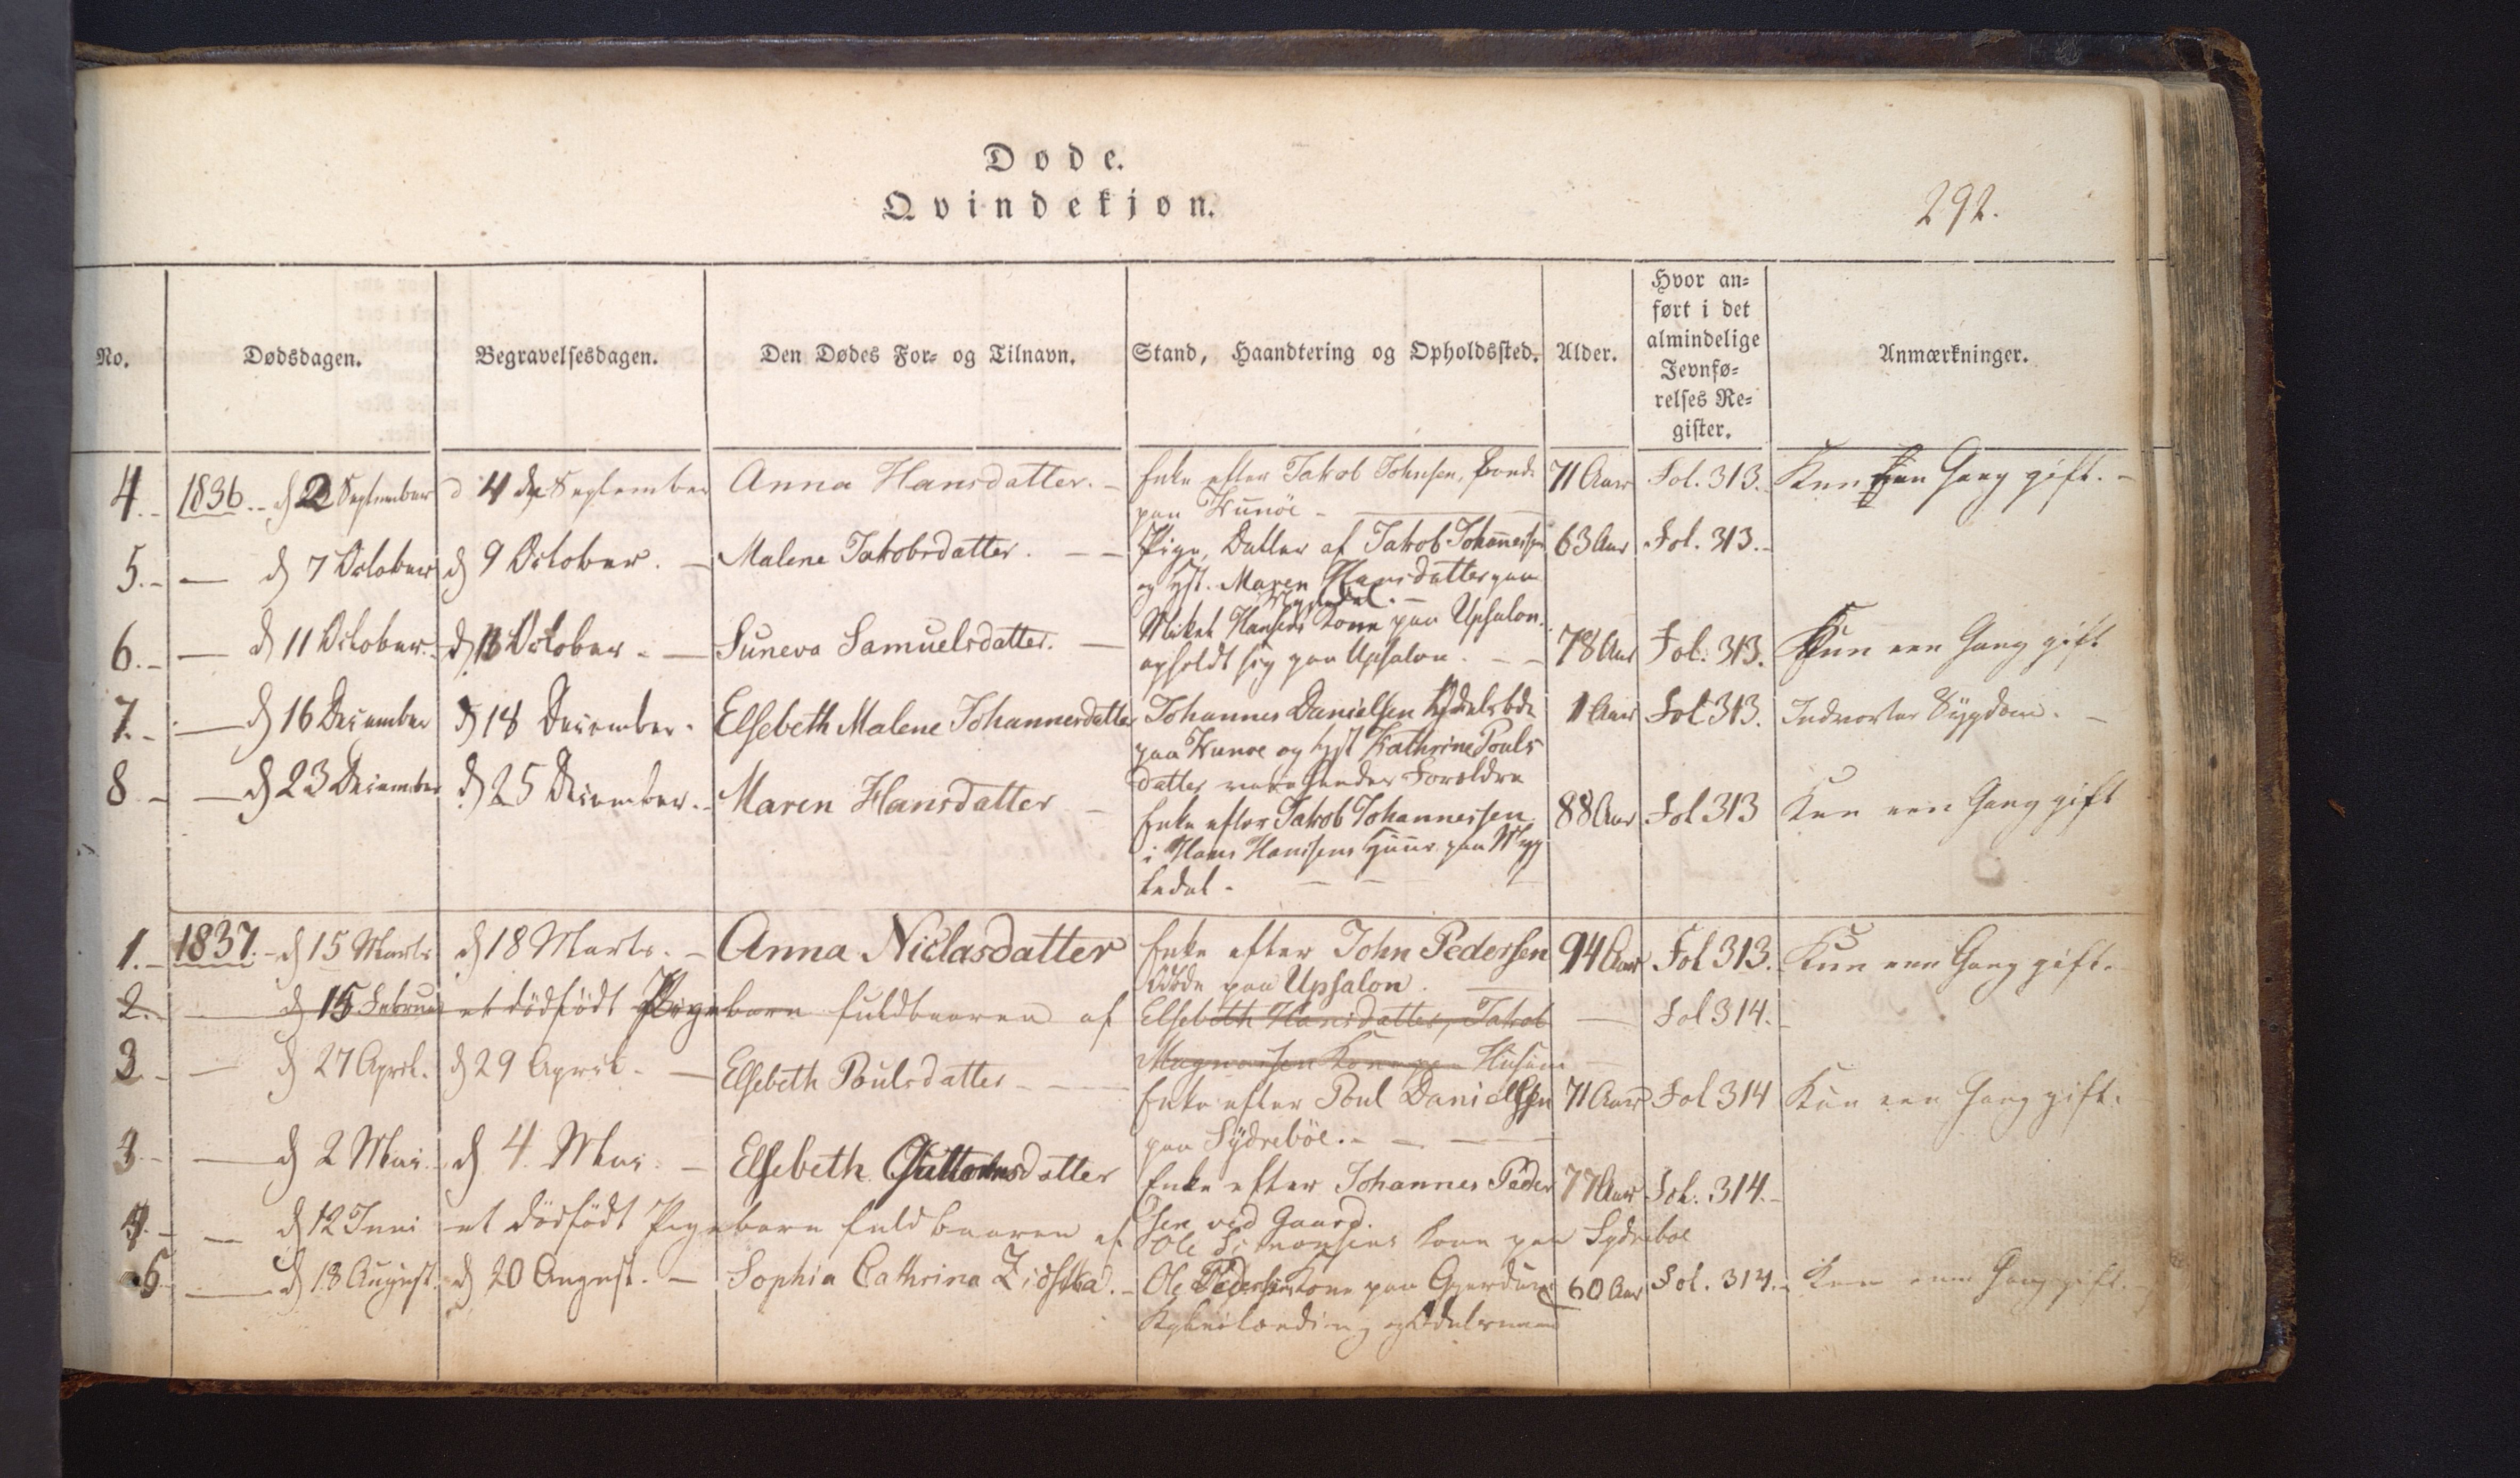 Døde.
Qvindekjøn.
292.
No. Dødsdagen. Begravelsesdagen. Den Dødes For- og Tilnavn. Stand, Haandtering og Opholdssted. Alder. Hvor an-
ført i det
almindelige
Jevnfø-
relses Re-
gister. Anmærkninger.
4.- 1836.- d 2 September d 4 de September Anna Hansdatter. - Enke efter Jakob Johnsen, Bonde 71 Aar Fol. 313. Kun een Gang gift. -
paa Kunöe -
5.- — d 7 October d 9 October. - Malene Jakobsdatter. - - Pige, Datter af Jakob Johannessen 63 Aar Fol. 313.-
og Hst. Maren Hansdatter paa
6.- — d 11 October. d 13 October. - Suneva Samuelsdatter. - Mikel Hansens Kone paa Upsalon. 78 Aar Fol. 313. Kun een Gang gift
opholdt sig paa Upsalon. - -
7.- — d 16 December d 18 December. Elsebeth Malene Johannesdatter Johannes Danielsen 1 Aar Fol 313. Indvortes Sygdom. -
paa Kunoe og Hst Kathrine Pouls
datter vare hendes Forældre
8 - — d 23 December d 25 December. - Maren Hansdatter - Enke efter Jakob Johannessen 88 Aar Fol 313 Kun een Gang gift
i Hans Hansens Huus paa Myg
ledal -
1.- 1837.- d 15 Marts d 18 Marts. - Anna Niclasdatter Enke efter John Pedersen 94 Aar Fol 313. Kun een Gang gift.
paa Upsalon.
2.- — d 15 Februar et dödfödt Pigebarn fuldbaaren af Elsebeth Hansdatter, Jakob — Fol 314.
Magnussen Kone paa Husum
3 - — d 27 April. d 29 April. - Elsebeth Poulsdatter - - Enke efter Poul Danielsen 71 Aar Fol 314 Kun een Gang gift.
paa Sydreböe. -
3 - — d 2 Mai. d 4. Mai. - Elsebeth Guttormsdatter Enke efter Johannes Peder 77 Aar Fol. 314.-
sen ved Gaard.
4.- — d 12 Juni et dödfödt Pigebarn fuldbaaren af Ole Simonsens Kone paa Sydreboe
5. — d 18 August. d 20 August. - Sophia Cathrina - Ole Pedersens Kone paa 60 Aar Fol. 314.- Kun een Gang gift.